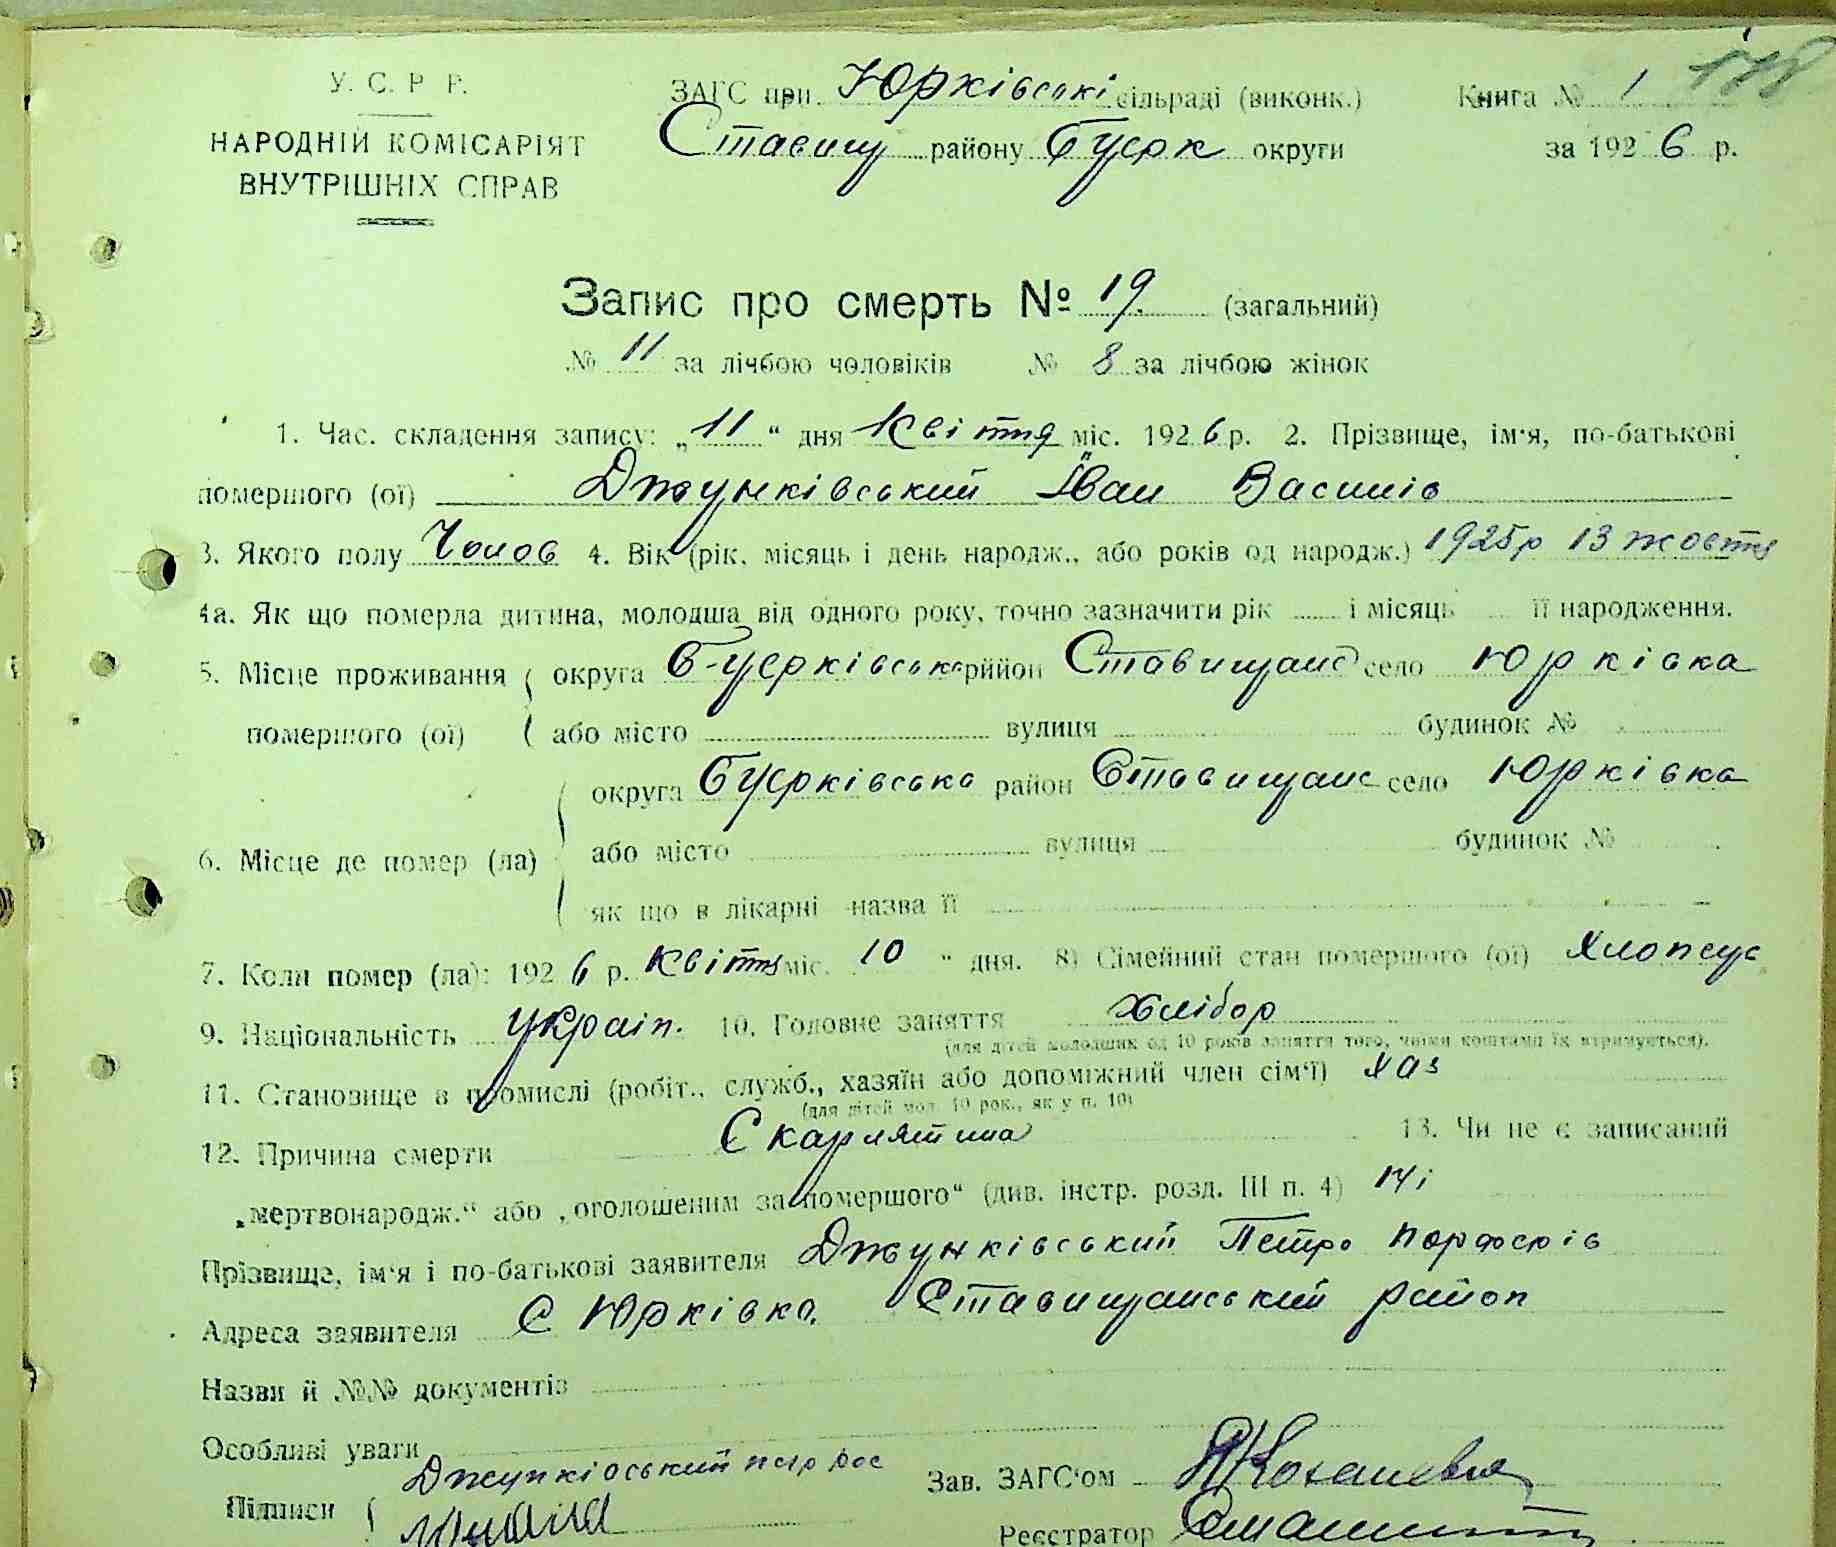 У. С. Р. Р.
НАРОДНІЙ КОМІСАРІЯТ
ВНУТРІШНІХ СПРАВ
ЗАГС при Юрківські сільраді (виконк.)
Ставищ району Буєрк округи
Книга № 1
за 1926 р.
Запис про смерть № 19. (загальний)
№ 11 за лічбою чоловіків № 8 за лічбою жінок
1. Час. складення запису: „11“ дня Квітня міс. 1926 р. 2. Прізвище, ім'я, по-батькові
помершого (ої) Джунківський Іван Василів
3. Якого полу Чолов 4. Вік (рік, місяць і день народж., або років од народж.) 1925р 13 жовтня
4а. Як що померла дитина, молодша від одного року, точно зазначити рік і місяць її народження.
5. Місце проживання округа Буєрківська рийон Ставищанс село Юрківка
помершого (ої) або місто вулиця будинок №
округа Буєрківська район Ставищанс село Юрківка
6. Місце де помер (ла) або місто вулиця будинок №
як що в лікарні назва її
7. Коли помер (ла): 1926 р. Квітня міс. 10 „ дня. 8) Сімейний стан помершого (ої)
9. Національність Україн. 10. Головне заняття Хлібор
(для дітей молодших од 10 років заняття того, чиїми коштами їх втримується).
11. Становище в промислі (робіт., служб., хазяїн або допоміжний член сім'ї) Хаз
(для дітей мол. 10 рок., як у п. 10)
12. Причина смерти Скарлятина 13. Чи не є записаний
„мертвонародж.“ або „оголошеним за помершого“ (див. інстр. розд. III п. 4) Ні
Прізвище, ім'я і по-батькові заявителя Джунківський Петро Порфєрів
Адреса заявителя С Юрківка. Ставищанський район
Назви й №№ документів
Особливі уваги
Підписи Джунківський
Зав. ЗАГС'ом
Реєстратор